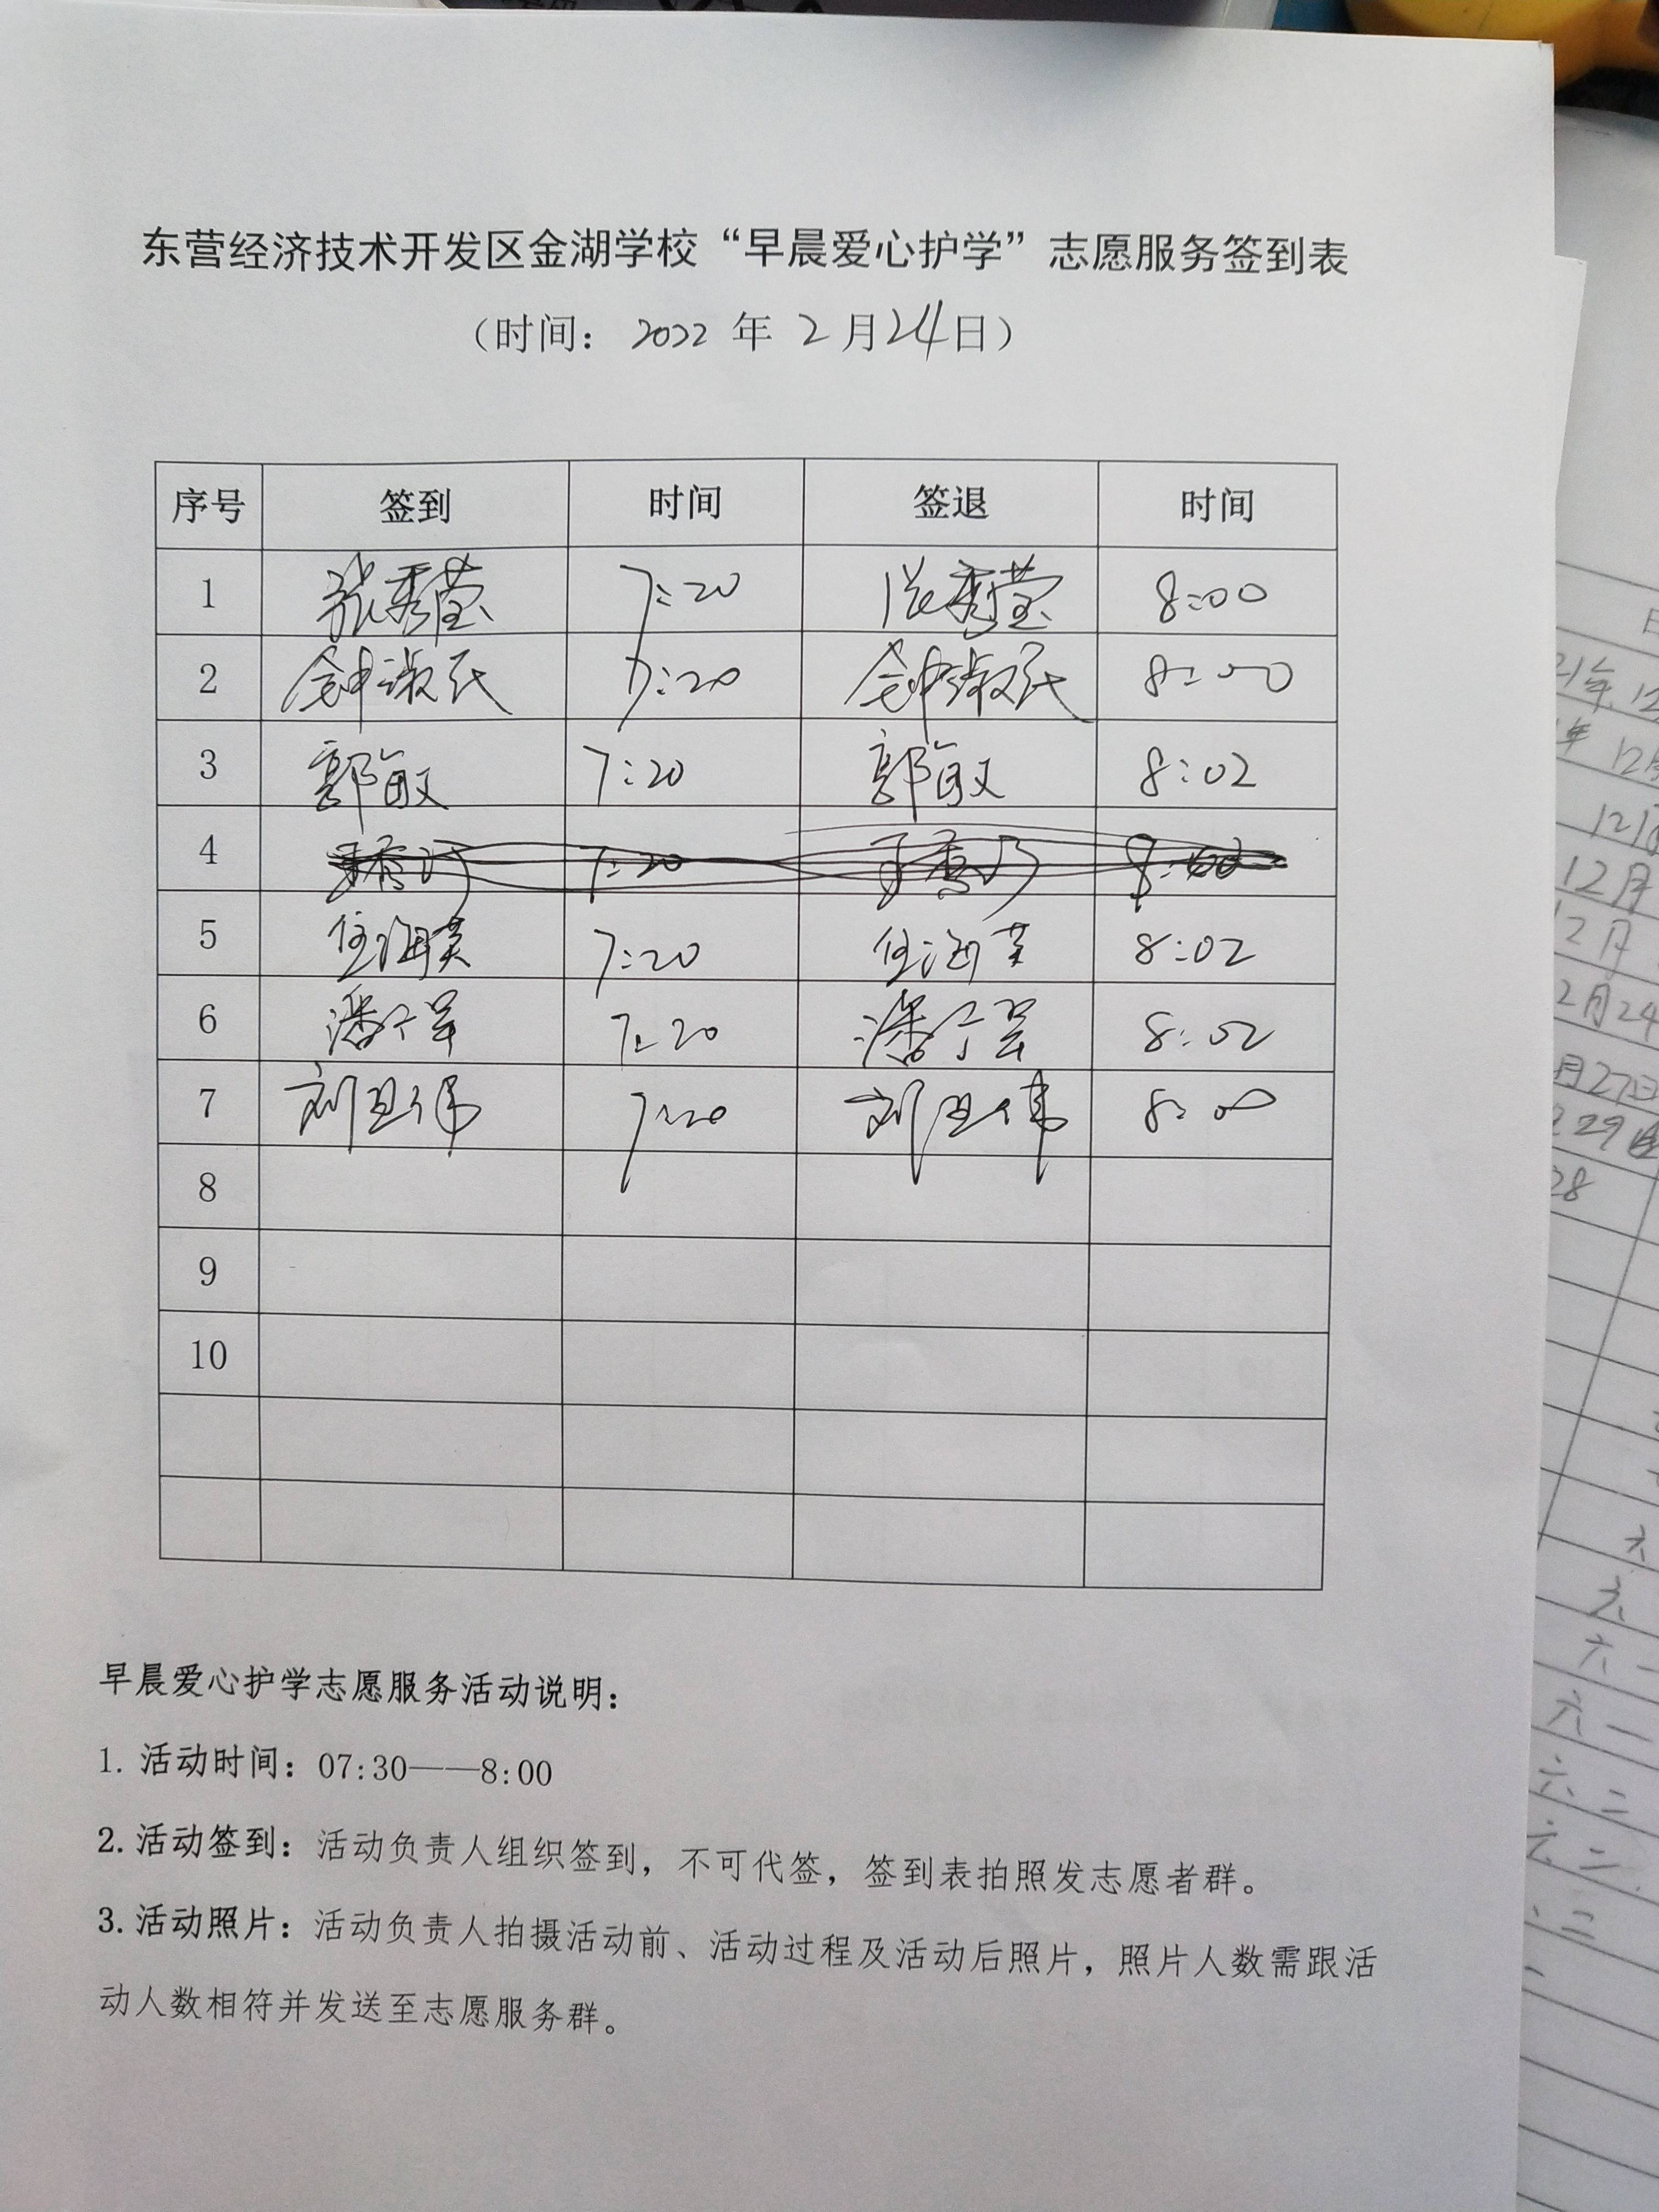 东营经济技术开发区金湖学校“早晨爱心护学”志愿服务签到表
（时间： 2022 年 2 月 24 日）
序号 签到 时间 签退 时间
1 张秀莹 7:20 张秀莹 8:00
2 钟淑民 7:20 钟淑民 8:00
3 郭敏 7:20 郭敏 8:02
4 7:20
5 任海英 7:20 任海英 8:02
6 7:20 8:02
7 7:20 8:00
8
9
10
早晨爱心护学志愿服务活动说明：
1. 活动时间：07:30——8:00
2. 活动签到：活动负责人组织签到，不可代签，签到表拍照发志愿者群。
3. 活动照片：活动负责人拍摄活动前、活动过程及活动后照片，照片人数需跟活
动人数相符并发送至志愿服务群。
12月
12月
2月24
月27日
29
28
六
六
六 一
六 一
六 二
六 二
二